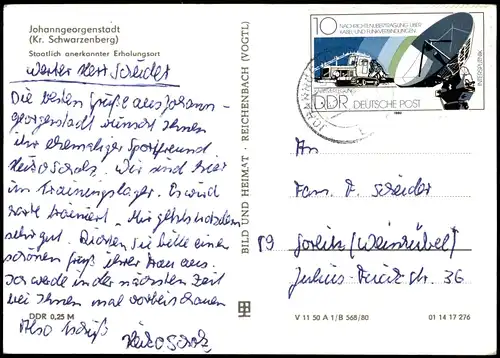 Johanngeorgenstadt
(Kr. Schwarzenberg)
Staatlich anerkannter Erholungsort
Werter Herr Scheider
Die besten Grüße aus Johann-
georgenstadt wünscht Ihnen
ihr ehemaliger Sportfreund
Heiko Scholz. Wir sind hier
im Trainingslager. Es wird
harte trainiert. Mir geht's trotzdem
sehr gut. Richten sie bitte einen
schönen Gruß ihrer Frau aus.
Ich werde in der nächsten Zeit
bei Ihnen mal vorbeischauen
Also tschüß
Heiko Scholz
DDR 0,25 M
BILD UND HEIMAT · REICHENBACH (VOGTL)
10
NACHRICHTENÜBERTRAGUNG ÜBER
KABEL UND FUNKVERBINDUNGEN
KABELVERLEGUNG
INTERSPUTNIK
DDR DEUTSCHE POST
1980
An
Fam. F. Scheider
89 Görlitz (Weinhübel)
Julius-Fucik-str. 36
V 11 50 A 1/B 568/80
01 14 17 276